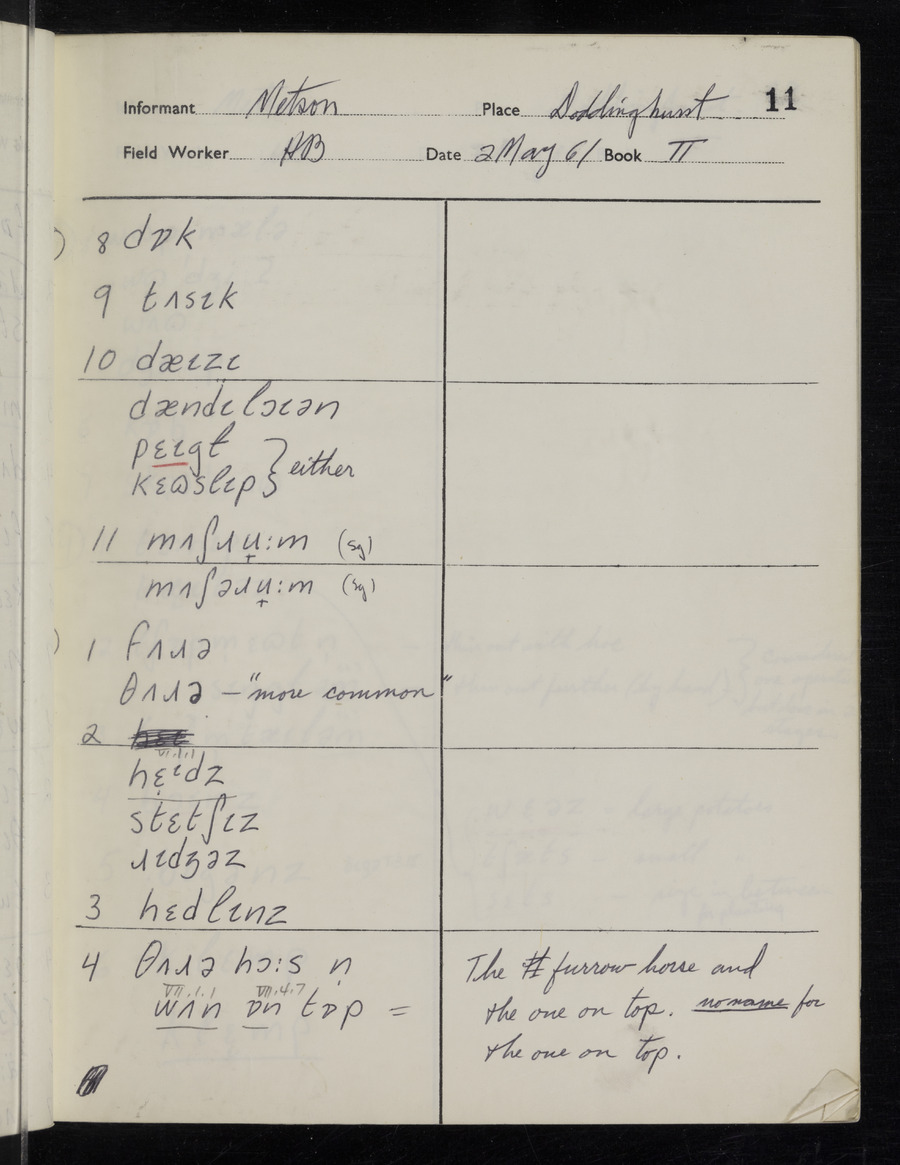 Informant Metson Place Doddinghurst 11
Field Worker HB Date 2 May 61 Book II
8 dɒk
9 tʌsɪk
10 dæɪzɪ
dændɪlɔɪən
pɛɪgɫ } either
kɛʊslɪp
11 mʌʃɹu̟:m (sg)
mʌʃəɹu̟:m (sg)
1 fʌɹə
θʌɹə – "more common"
2
VI.1.1
hɛɪdz
stɛtʃɪz
ɹɪdʒəz
3 hɛdlɪnz
4 θʌɹə hɔ:s n̩ The # furrow horse and
VII.1.1 VII.4.7
wʌn ɒn tɒp = the one on top. no name for
the one on top.